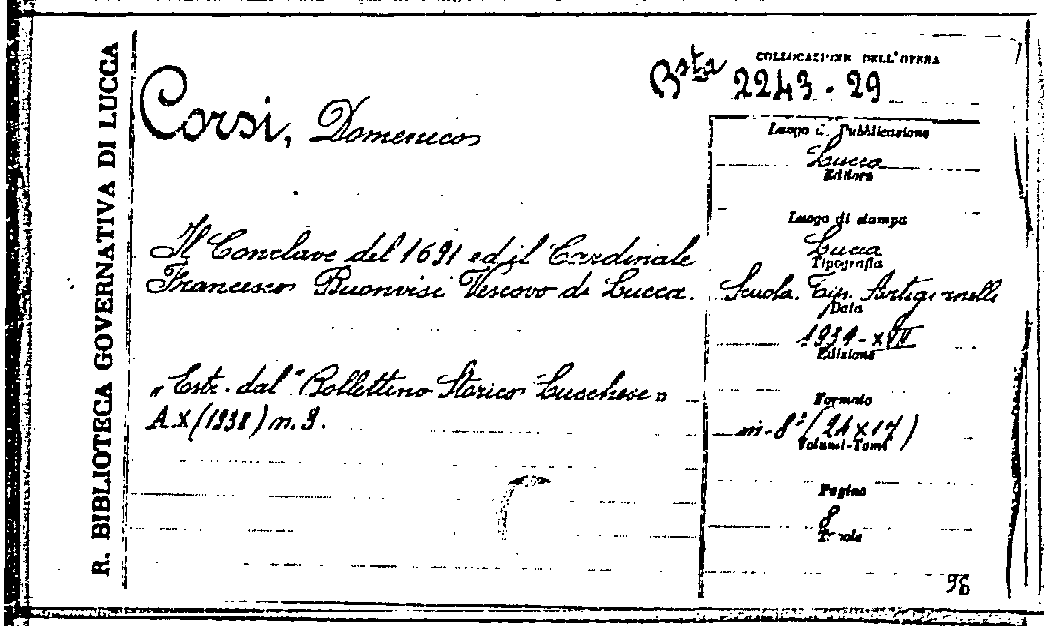 R. BIBLIOTECA GOVERNATIVA DI LUCCA
COLLOCAZIONE DELL'OPERA
Bsta 2243 - 29
Corsi, Domenico
Il Conclave del 1691 ed il Cardinale
Francesco Buonvisi Vescovo di Lucca.
„Estr. dal "Bollettino Storico Lucchese"
A. X (1938) n. 3.
Luogo di Pubblicazione
Lucca
Editore
Luogo di stampa
Lucca
Tipografia
Scuola Tip. Artigianelli
Data
1939 - XVII
Edizione
Formato
in-8° (24 x 17)
Volumi-Tomi
Pagine
8
Tavole